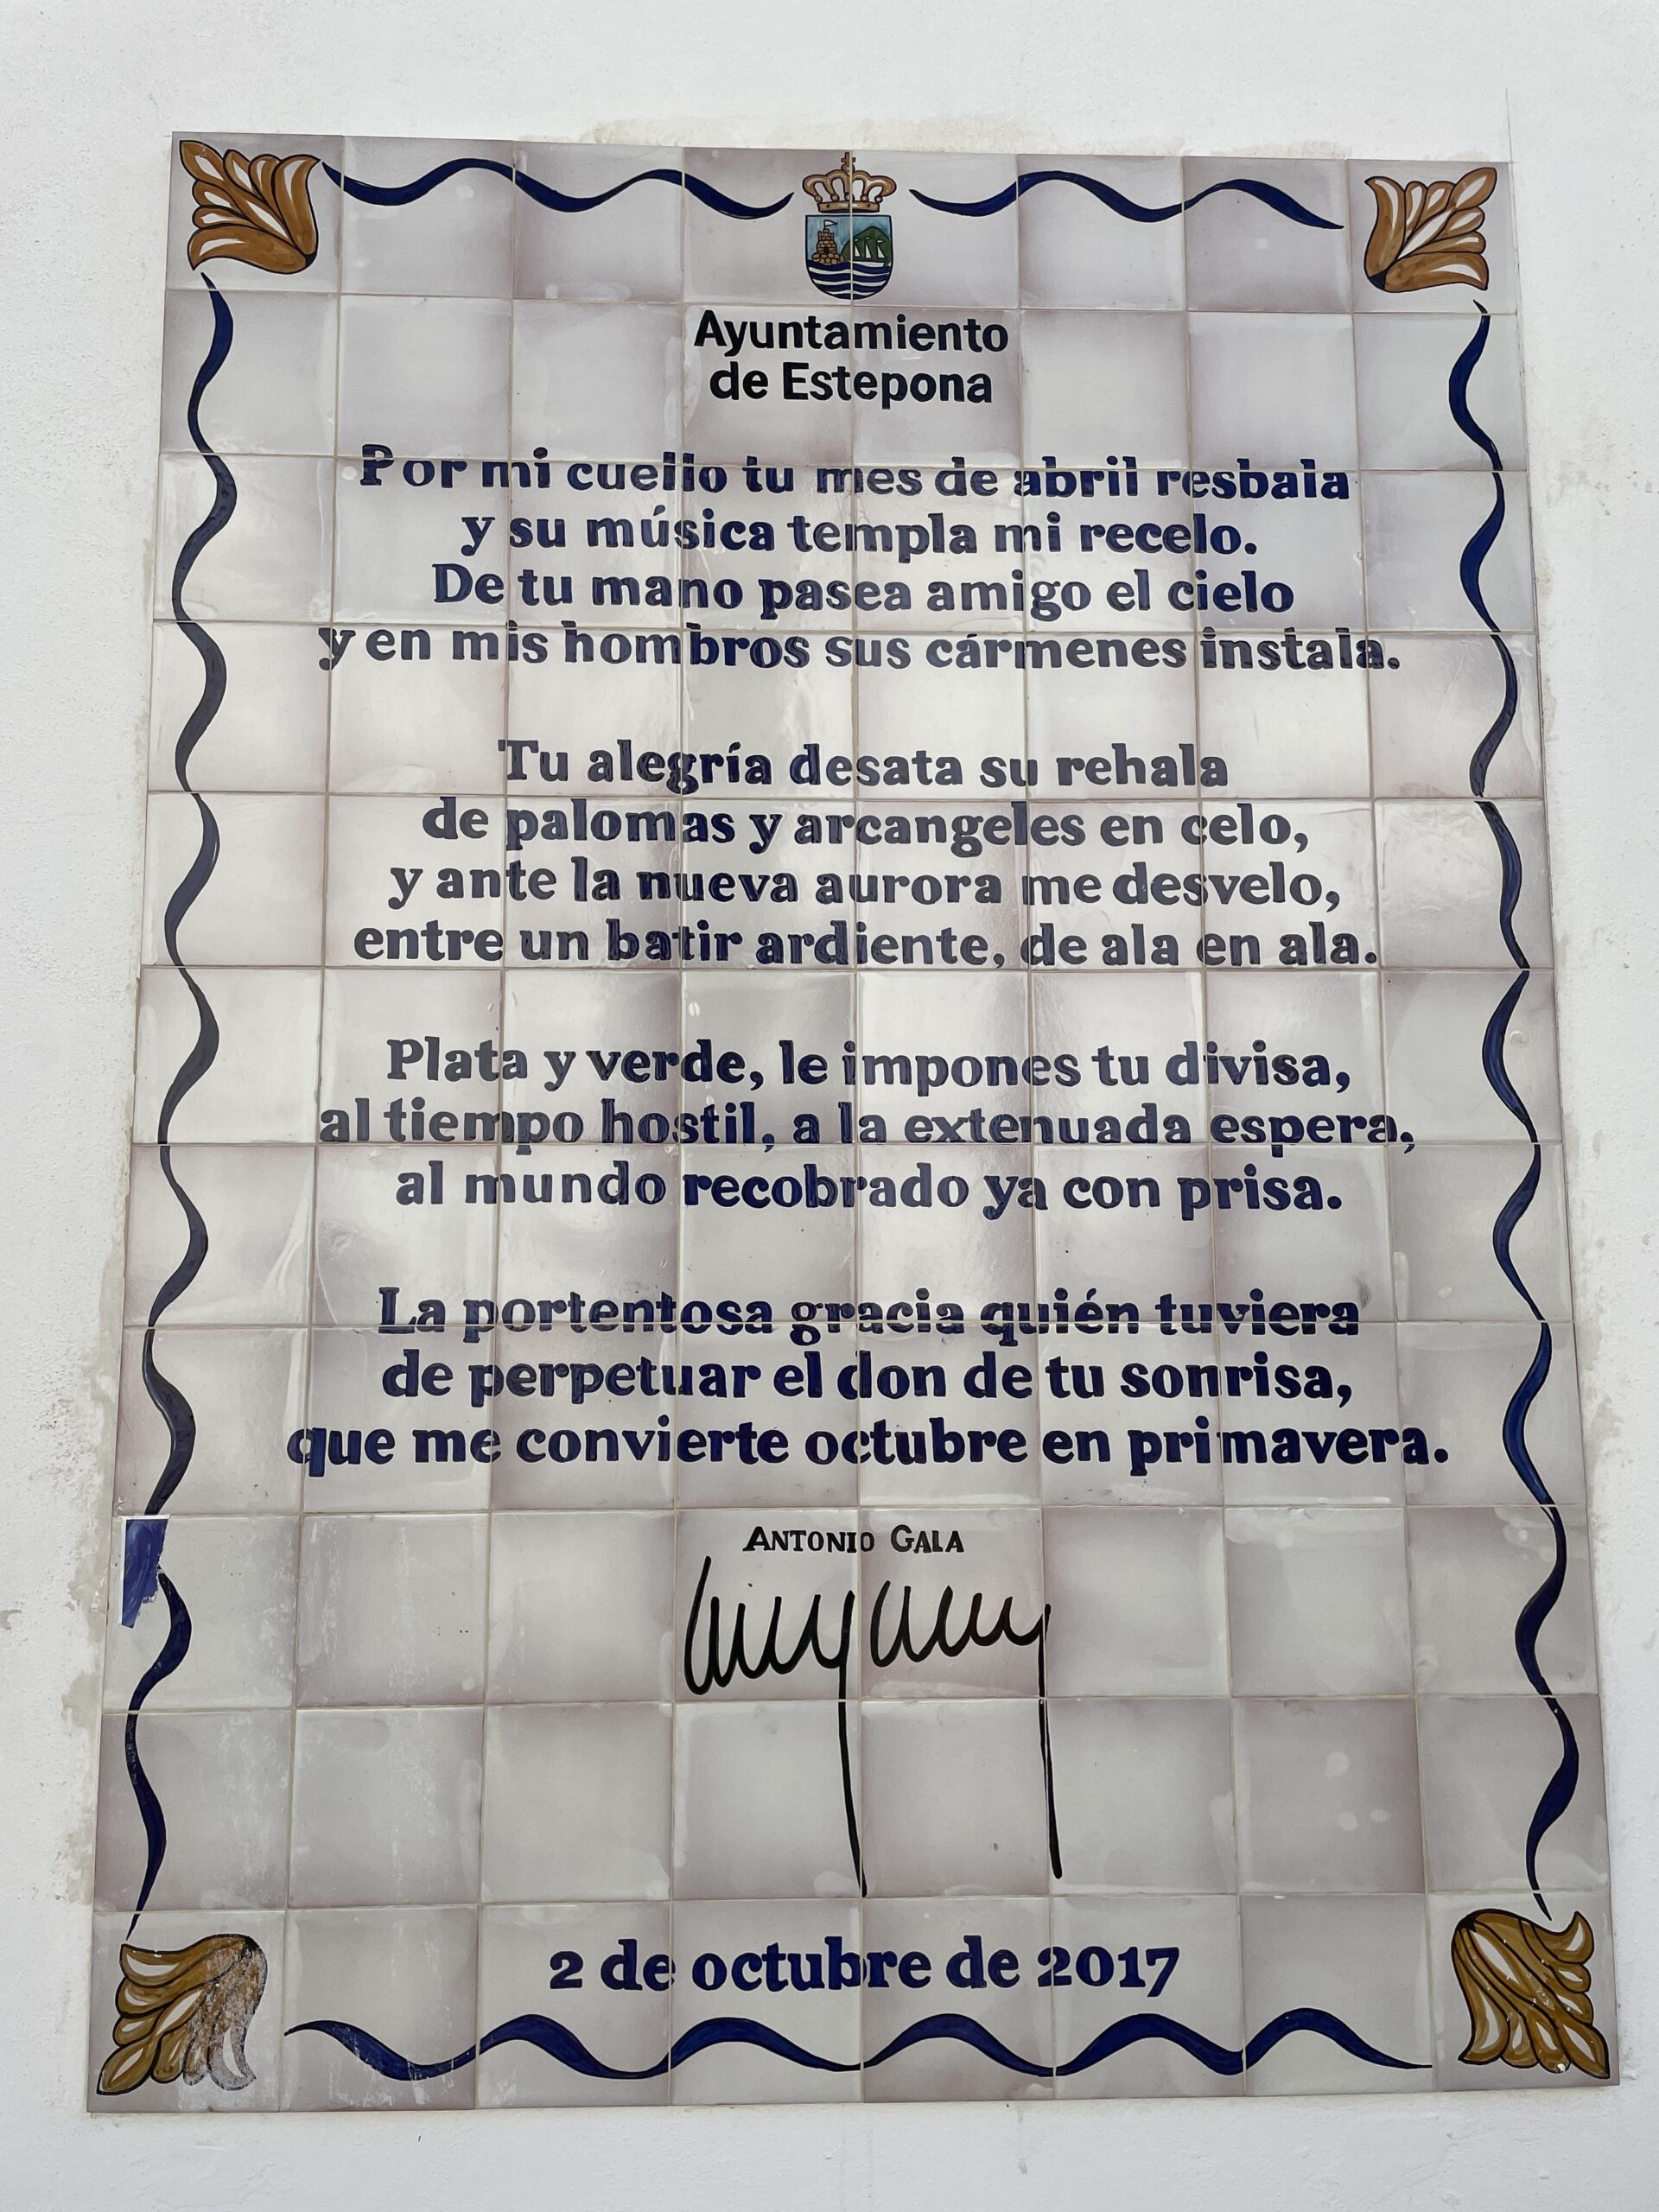 Ayuntamiento
de Estepona
Por mi cuello tu mes de abril resbala
y su música templa mi recelo.
De tu mano pasea amigo el cielo
y en mis hombros sus cármenes instala.
Tu alegría desata su rehala
de palomas y arcangeles en celo,
y ante la nueva aurora me desvelo,
entre un batir ardiente, de ala en ala.
Plata y verde, le impones tu divisa,
al tiempo hostil, a la extenuada espera,
al mundo recobrado ya con prisa.
La portentosa gracia quién tuviera
de perpetuar el don de tu sonrisa,
que me convierte octubre en primavera.
ANTONIO GALA
2 de octubre de 2017